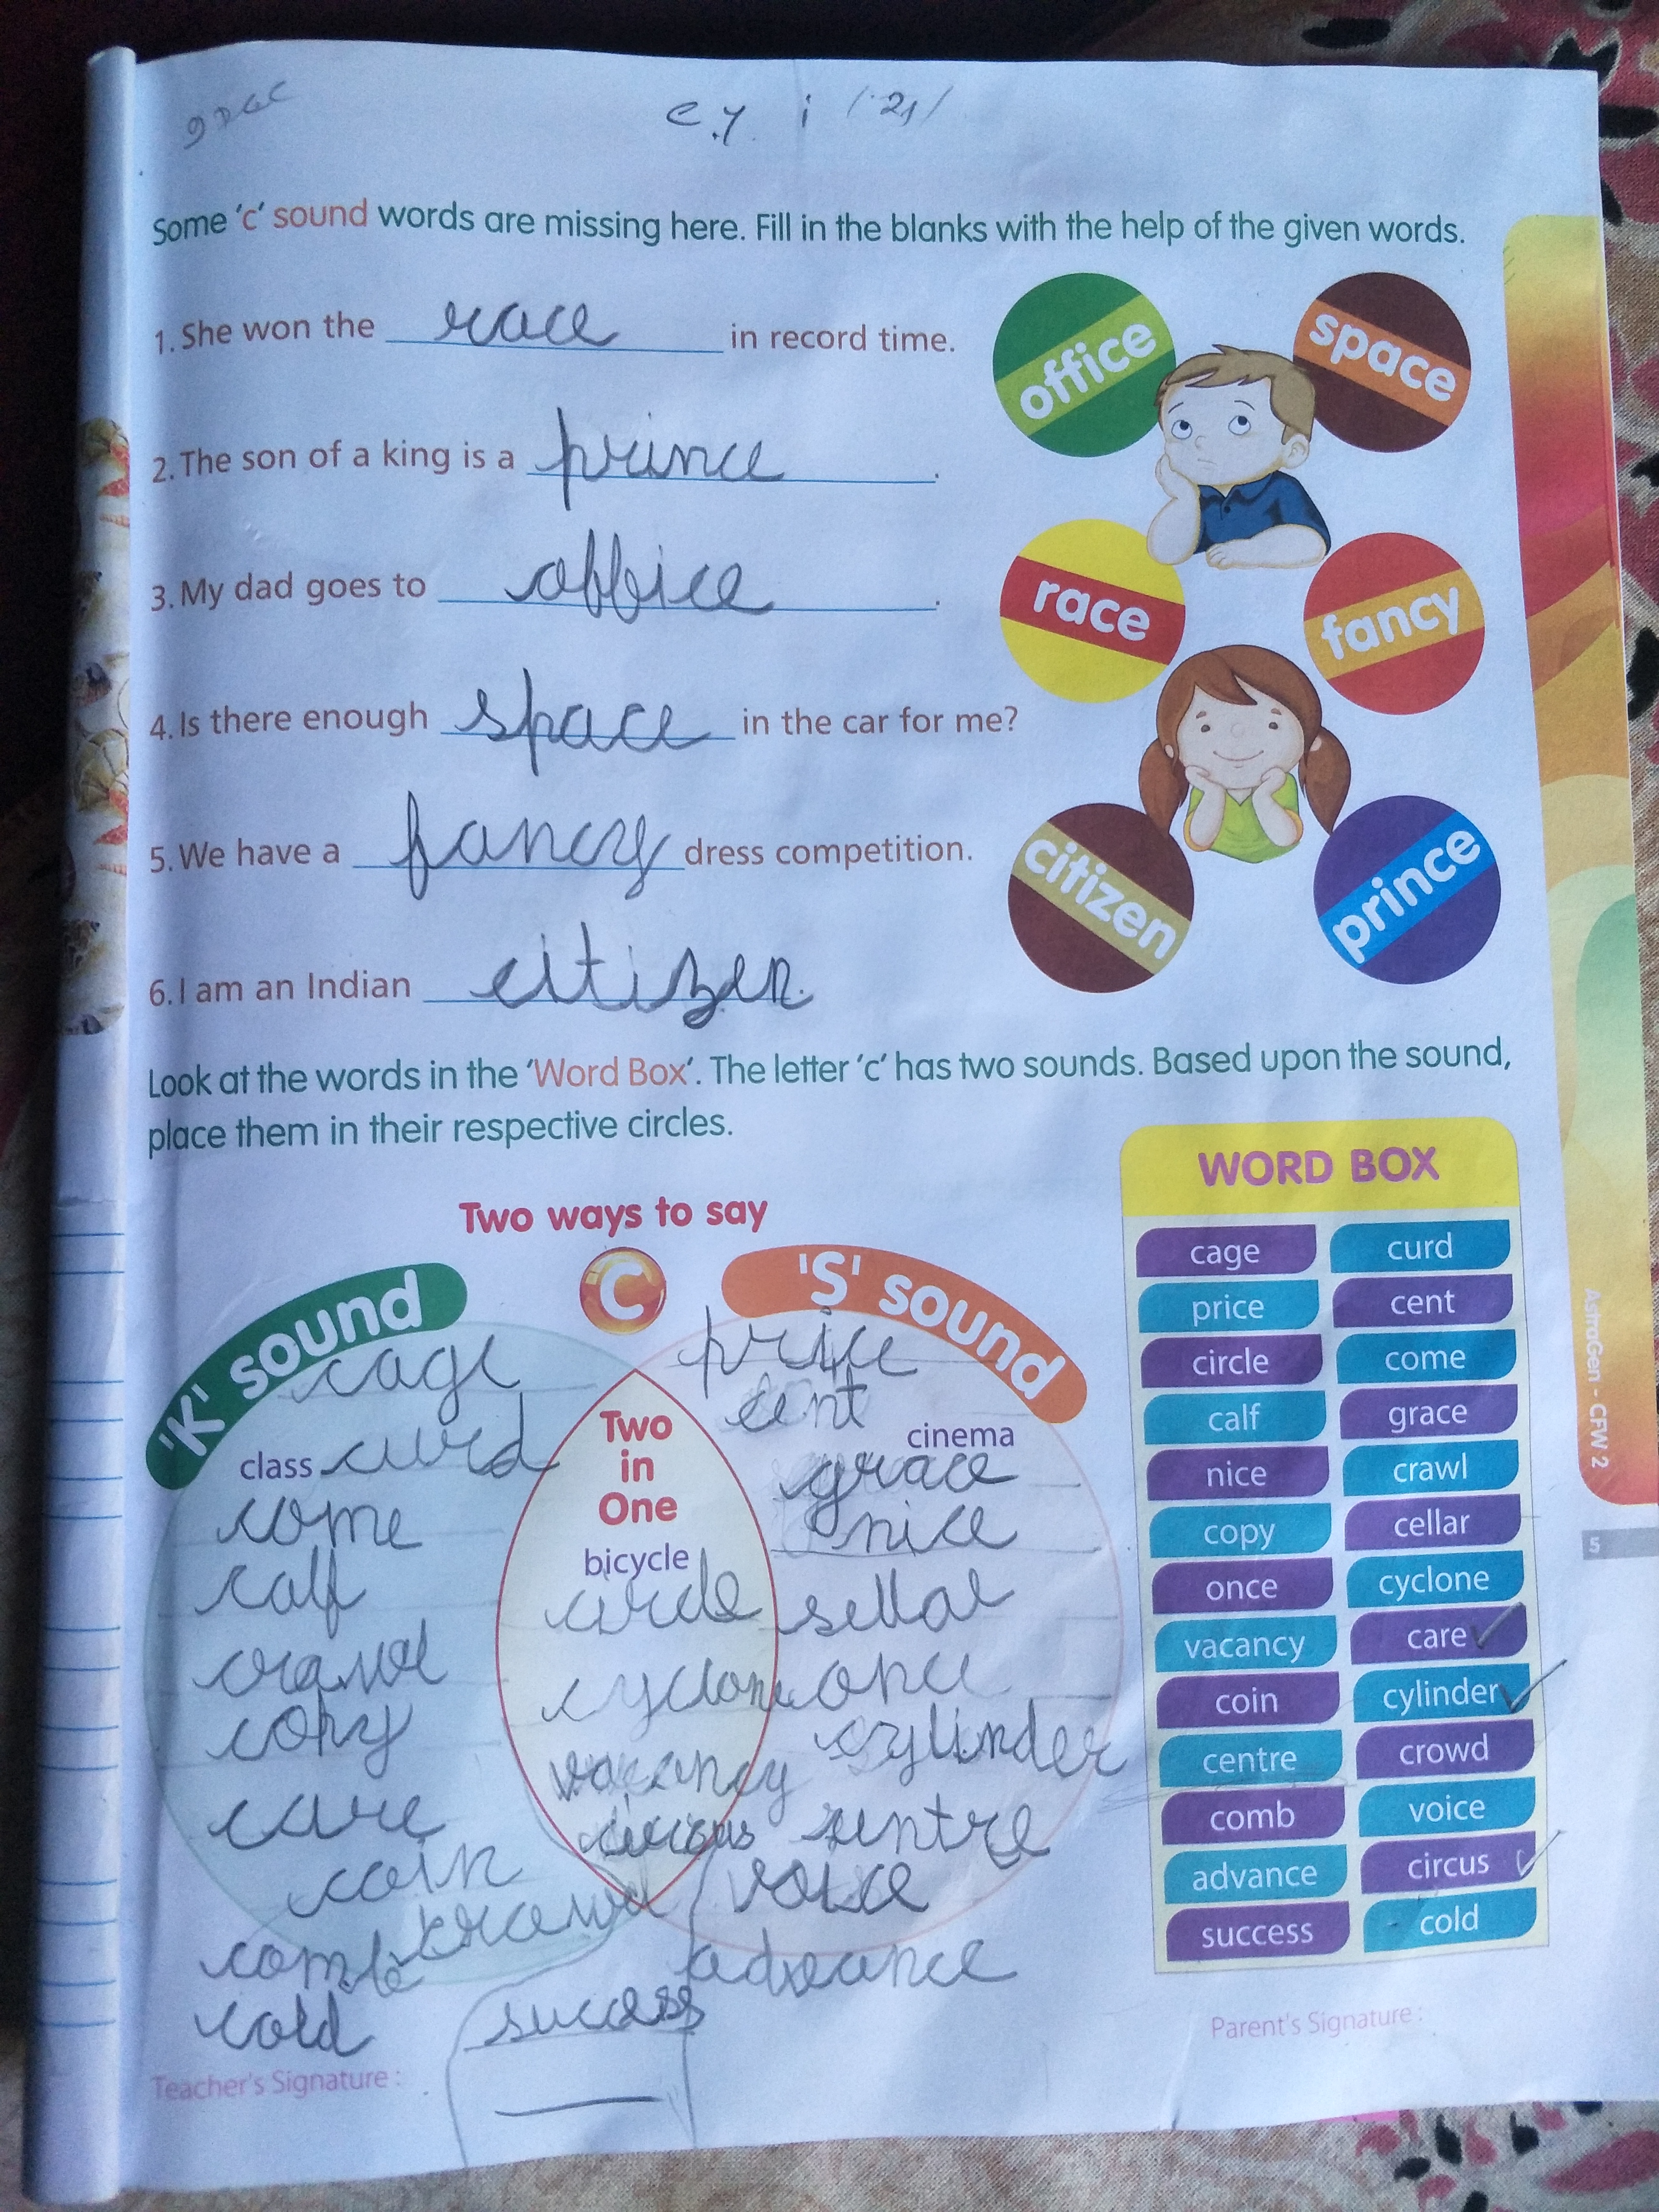 e.y. i / 21/
Some 'c' sound words are missing here. Fill in the blanks with the help of the given words.
1. She won the race in record time.
2. The son of a king is a prince.
3. My dad goes to office.
4. Is there enough space in the car for me?
5. We have a fancy dress competition.
6. I am an Indian citizen.
office
space
race
fancy
citizen
prince
Look at the words in the 'Word Box'. The letter 'c' has two sounds. Based upon the sound,
place them in their respective circles.
Two ways to say
C
'K' sound
cage
class curd
come
calf
crawl
copy
care
coin
crowd
comb
cold
Two
in
One
bicycle
circle
cyclone
vacancy
circus
success
'S' sound
price
cent
cinema
grace
nice
sellar
once
cylinder
sentre
voice
advance
WORD BOX
cage curd
price cent
circle come
calf grace
nice crawl
copy cellar
once cyclone
vacancy care
coin cylinder
centre crowd
comb voice
advance circus
success cold
Teacher's Signature :
Parent's Signature :
AstroGen - CFW 2
5